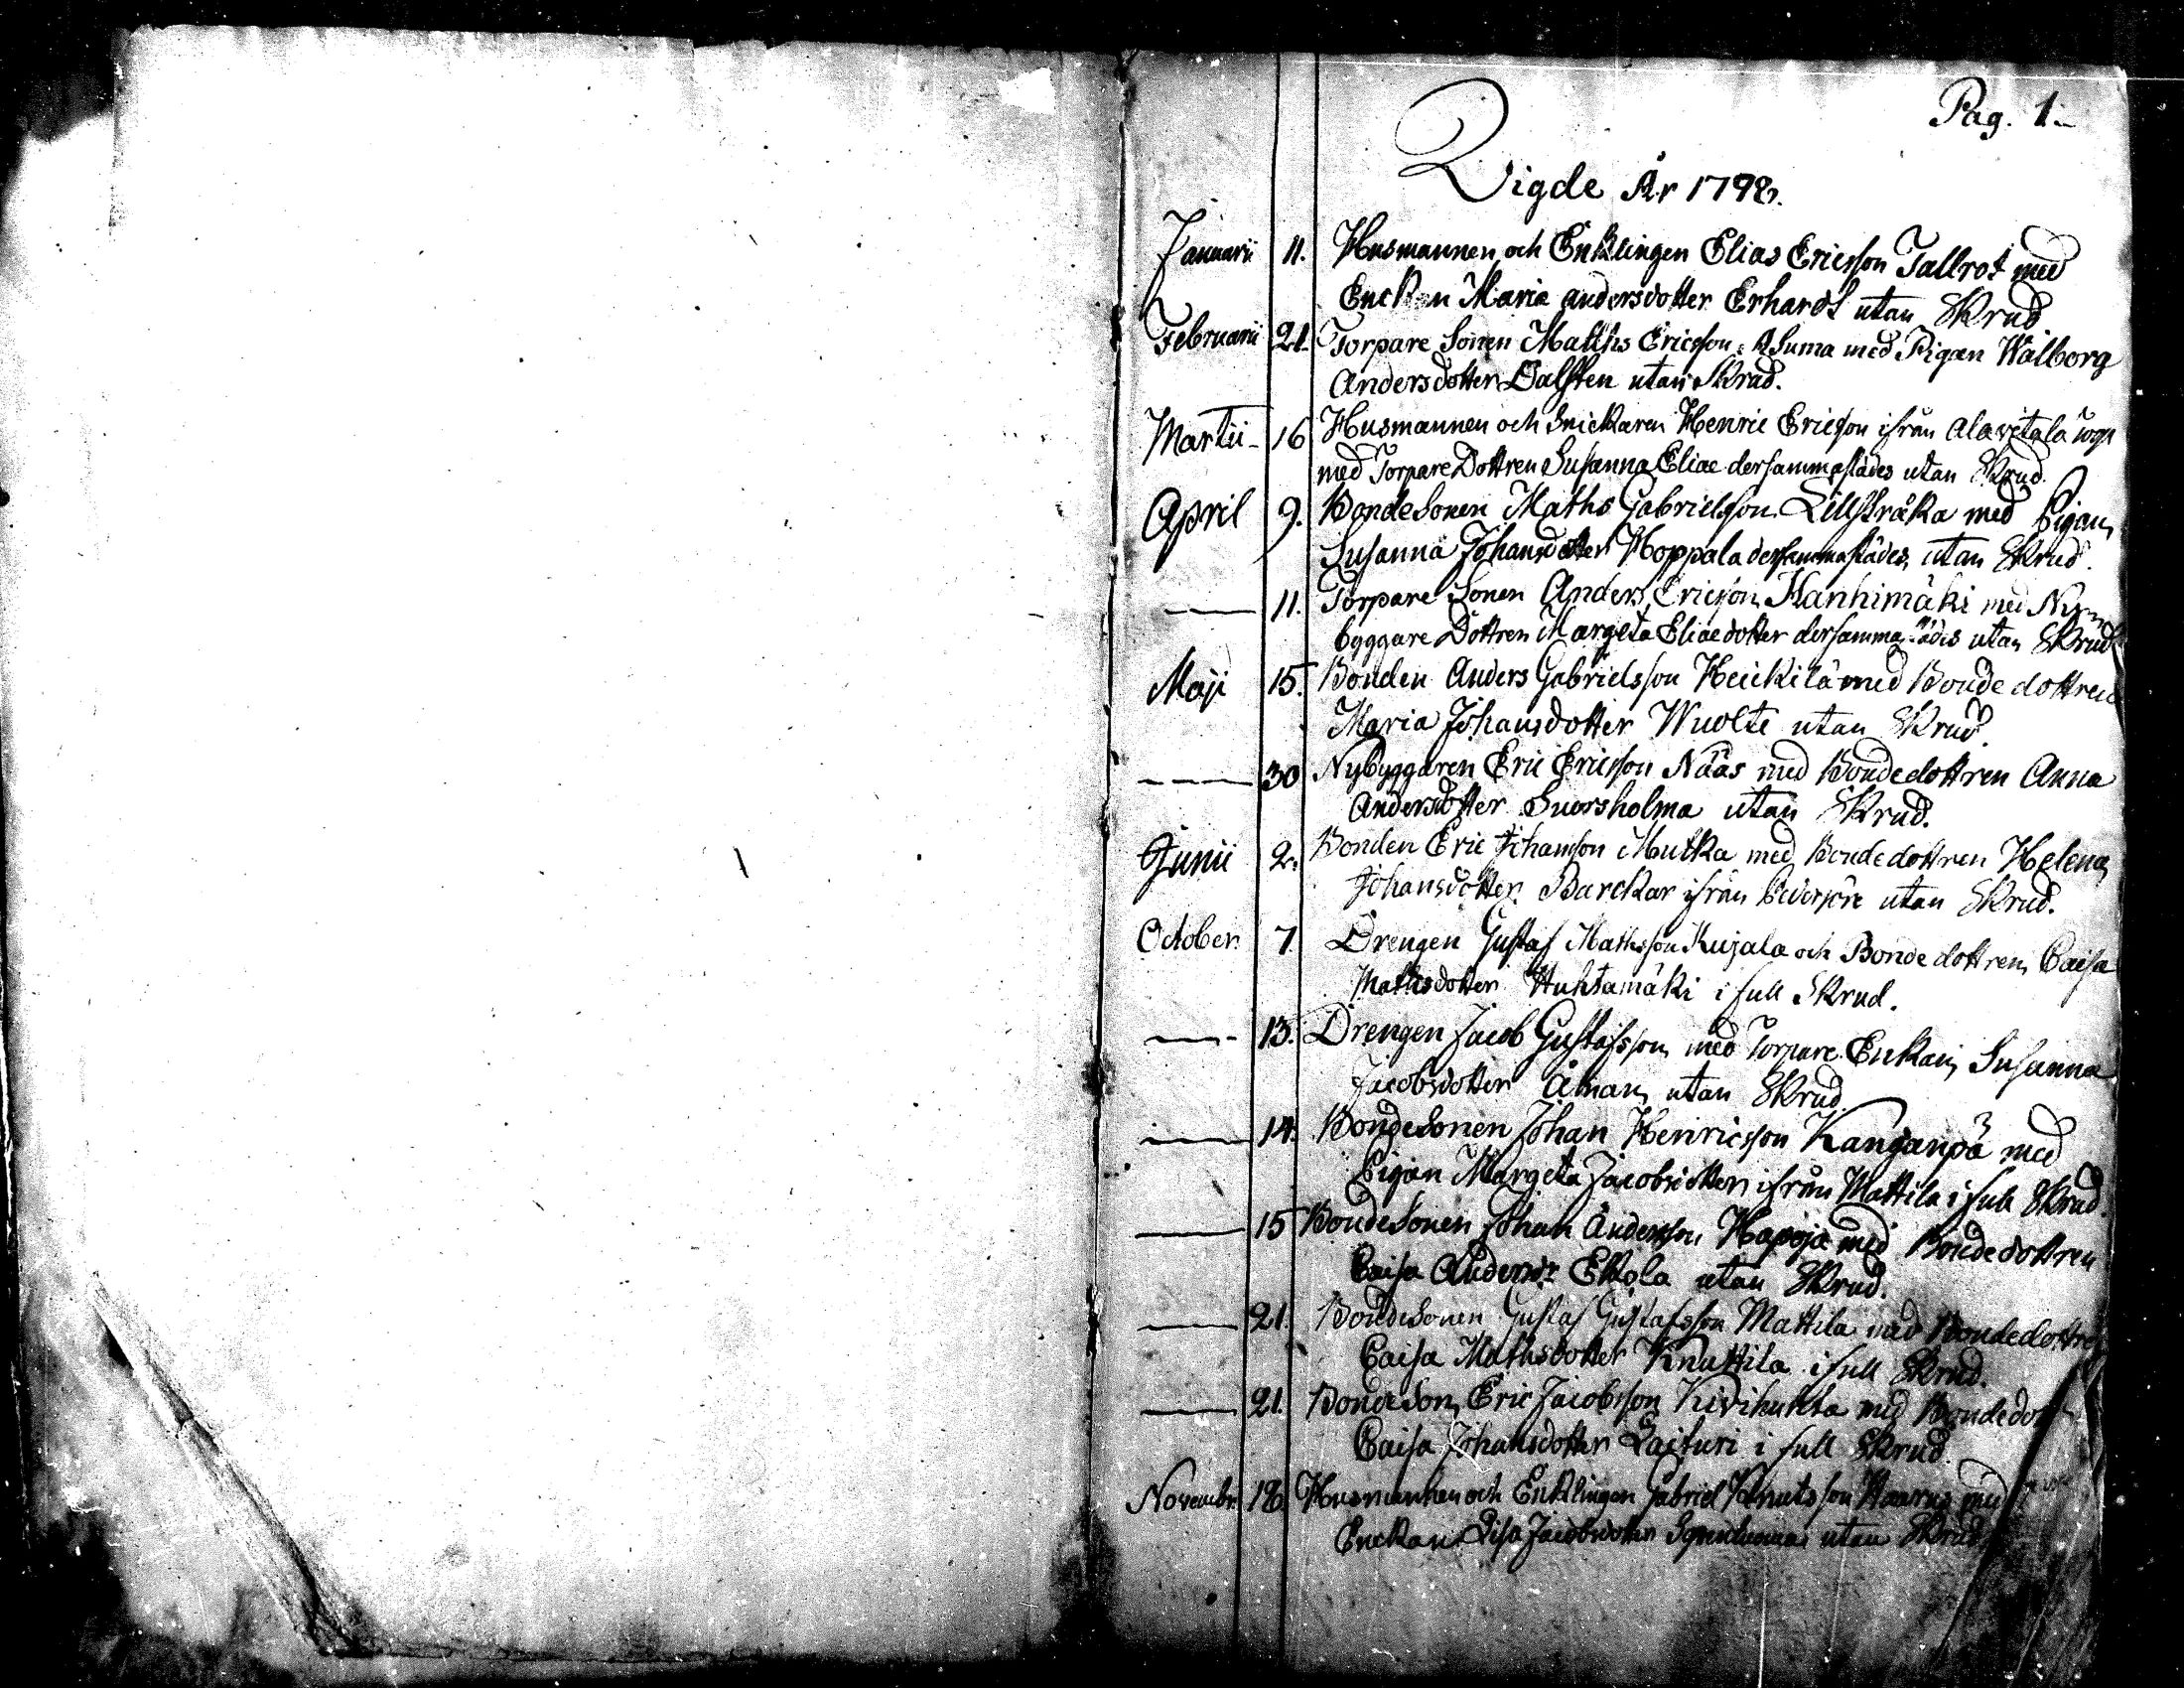 Pag. 1.
Vigde År 1798.
Januarii 11. Husmannen och Enklingen Elias Ericsson Tallrot med
Enckan Maria andersdotter Erhardt utan Skrud
Februarii 21. Torpare Sonen Matths Ericsson med Pigan Walborg
Andersdotter Dalsten utan Skrud.
Martii 16 Husmannen och Snickaren Henric Ericsson ifrån Alavitala
med Torpare Dottren Susanna Eliae dersammastädes utan Skrud.
April 9. BondeSonen Maths Gabrielsson Lillstråka med Pigan
Susanna Johansdotter Hoppala dersammastädes utan Skrud.
11. Torpare Sonen Anders Ericsson Kanhimäki med Ny-
byggare Dottren Margeta Eliaedotter dersammastädes utan Skrud
Maji 15. Bonden Anders Gabrielsson Heickilä med Bondedottren
Maria Johansdotter Wuolte utan Skrud.
30 Nybyggaren Eric Ericsson Nääs med Bondedottren Anna
Andersdotter Svorsholma utan Skrud.
Junii 2. Bonden Eric Johansson Mutka med Bondedottren Helena
Johansdotter Barckar ifrån utan Skrud.
October 7. Drengen Gustaf Mathsson Kujala och Bondedottren Caisa
Mathsdotter Huhtamäki i full Skrud.
13. Drengen Jacob Gustafsson med Torpare Enkan Susanna
Jacobsdotter Åman utan Skrud
14. BondeSonen Johan Henricsson Kanganpä med
Pigan Margeta Jacobsdotter ifrån Mattila i full Skrud.
15 BondeSonen Johan Andersson Hapoja med Bondedottren
Caisa Andersdr Ekola utan Skrud.
21. BondeSonen Gustaf Gustafsson Mattila med Bondedottren
Caisa Mathsdotter Knuttila i full Skrud.
21. BondeSon Eric Jacobsson Kivihuhta med
Caisa Johansdotter Laituri i full Skrud.
Novembr. 18. Husmannen och Enklingen Gabriel Knutsson med
Enckan Lisa Jacobsdotter utan Skrud